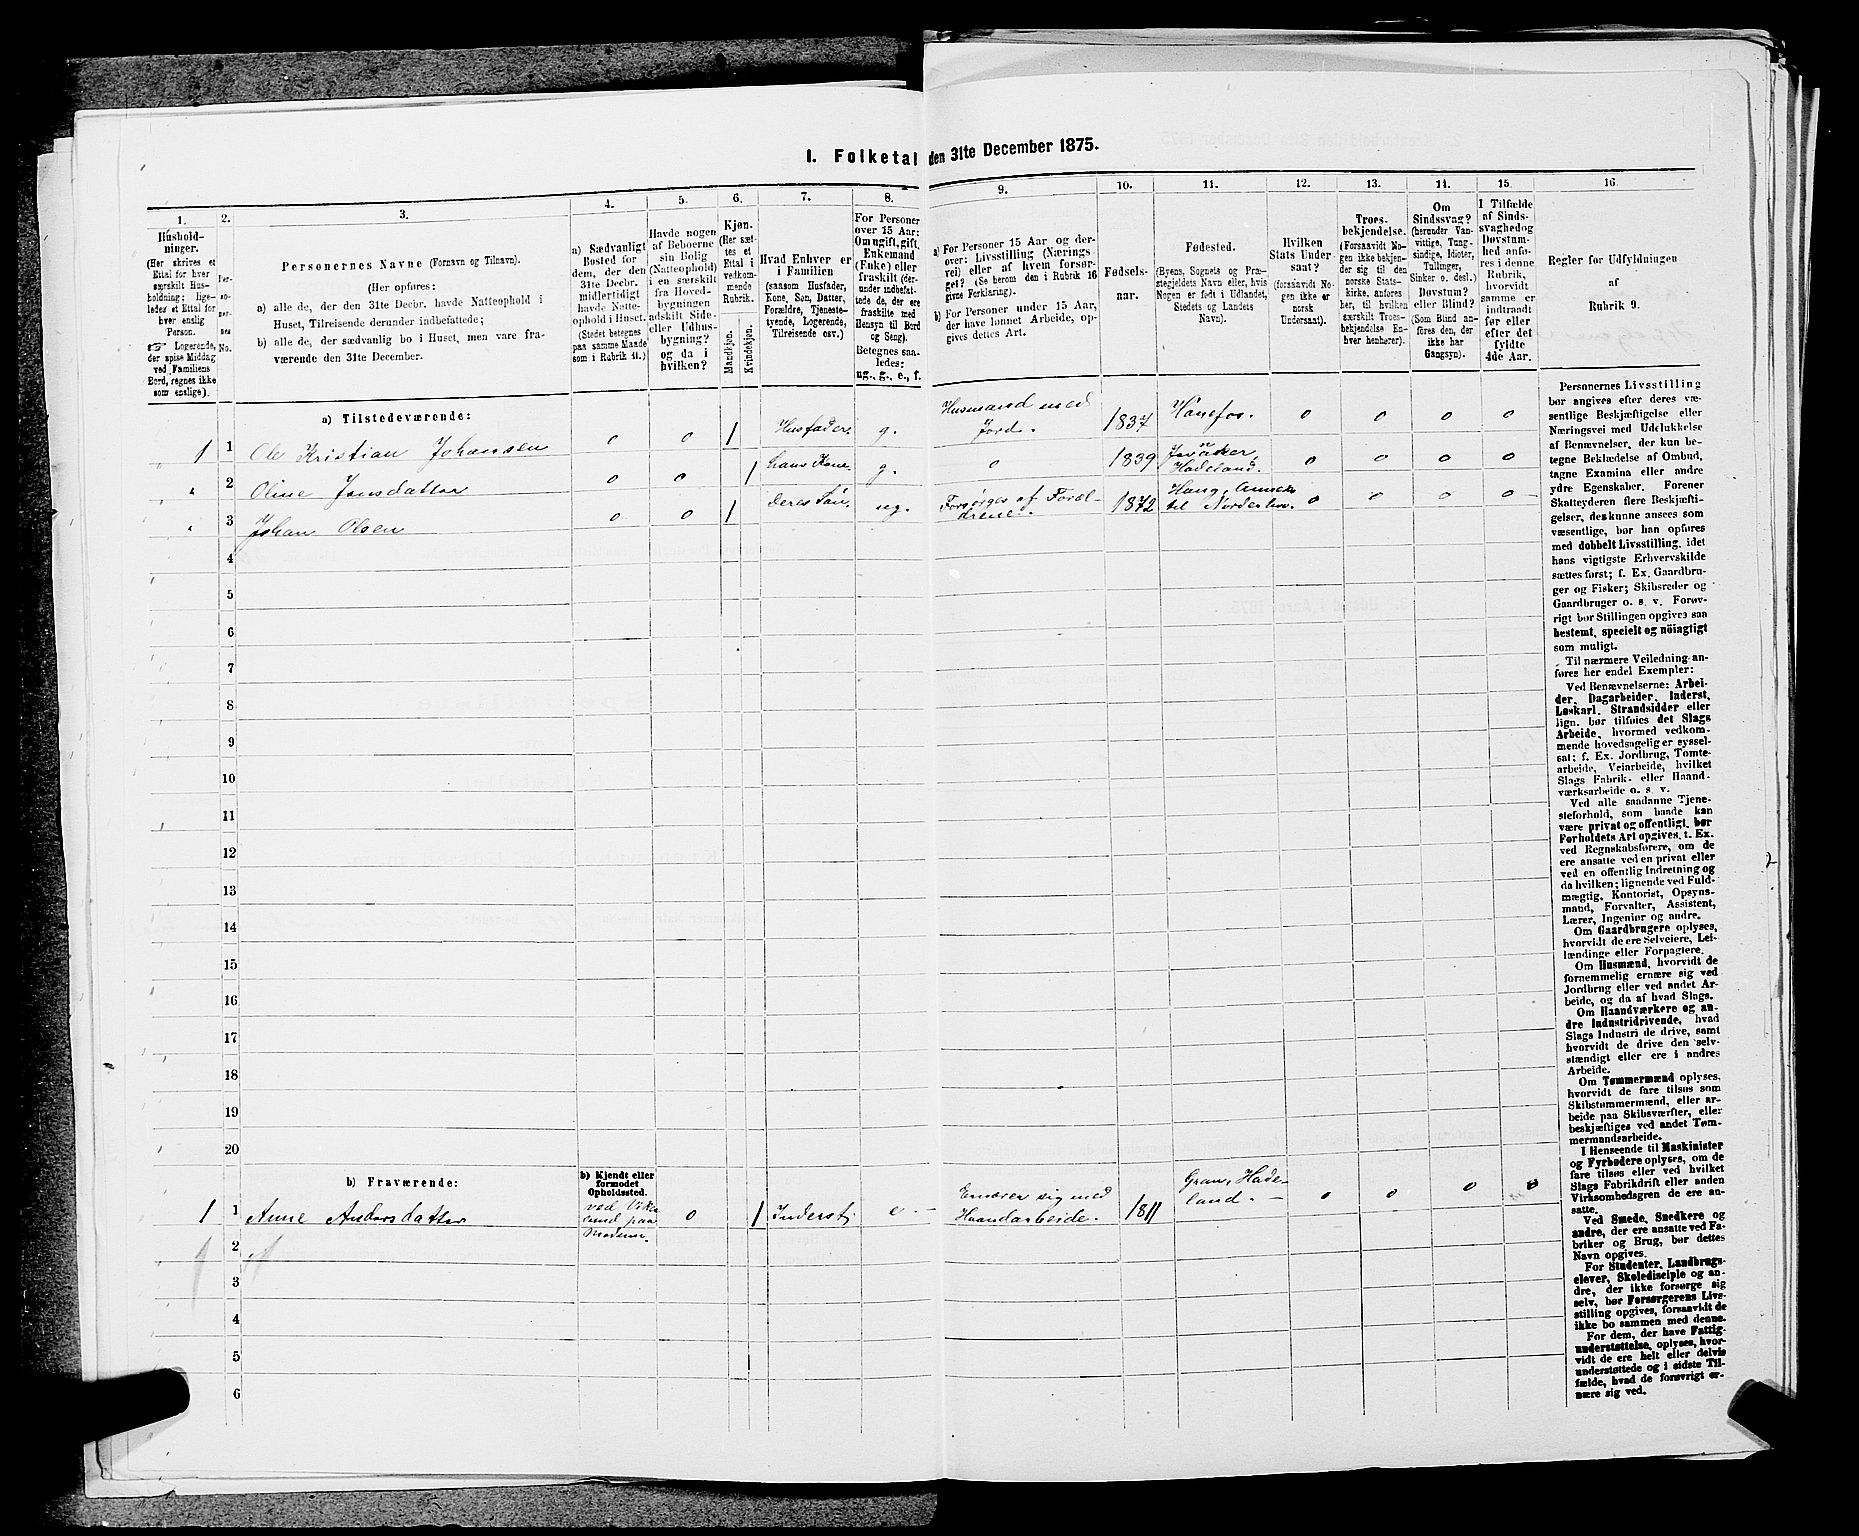 I. Folketal den 31te December 1875.
1.
Husholdninger.
(Her skrives et
Ettal for hver
særskilt Husholdning;
ligeledes et Ettal for
hver enslig
Person.
Logerende,
der spise Middag
ved Familiens
Bord, regnes ikke
som enslige).
2.
Personernes
No.
3.
Personernes Navne (Fornavn og Tilnavn).
(Her opføres:
a) alle de, der den 31te Decbr. havde Natteophold i
Huset, Tilreisende derunder indbefattede;
b) alle de, der sædvanlig bo i Huset, men vare fraværende
den 31te December.
4.
a) Sædvanligt
Bosted for
dem, der den
31te Decbr.
midlertidigt
havde Natteophold
i Huset.
(Stedet betegnes
paa samme Maade
som i Rubrik 11.)
5.
Havde nogen
af Beboerne
sin Bolig
(Natteophold)
i en særskilt
fra Hovedbygningen
adskilt Side-
eller Udhusbygning?
og da i
hvilken?
6.
Kjøn.
(Her sættes
et
Ettal i
vedkommende
Rubrik.
Mandkjøn.
Kvindekjøn.
7.
Hvad Enhver er
i Familien
(saasom Husfader,
Kone, Søn, Datter,
Forældre, Tjenestetyende,
Logerende,
Tilreisende osv.)
8.
For Personer
over 15 Aar:
Om ugift, gift,
Enkemand
(Enke) eller
fraskilt (derunder
indbefattede
de, der ere
fraskilte med
Hensyn til Bord
og Seng).
Betegnes saaledes:
ug., g., e., f.
9.
a) For Personer 15 Aar og derover:
Livsstilling (Næringsvei)
eller af hvem forsørget?
(Se herom den i Rubrik 16
givne Forklaring).
b) For Personer under 15 Aar,
der have lønnet Arbeide, opgives
dettes Art.
10.
Fødselsaar.
11.
Fødested.
(Byens, Sognets og Præstegjeldets
Navn eller, hvis
Nogen er født i Udlandet,
Stedets og Landets
Navn).
12.
Hvilken
Stats Undersaat?
(forsaavidt Nogen
ikke er
norsk
Undersaat).
13.
Troesbekjendelse.
(Forsaavidt Nogen
ikke bekjender
sig til den
norske Statskirke,
anføres
her, til hvilken
særskilt Troesbekjendelse
Enhver
henhører).
14.
Om
Sindssvag?
(herunder Vanvittige,
Tungsindige,
Idioter,
Tullinger,
Sinker o. desl.)
Døvstum?
eller Blind?
(Som Blind anføres
den, der
ikke har
Gangsyn).
15.
I Tilfælde
af Sindssvaghed
og
Døvstumhed
anføres
i denne
Rubrik,
hvorvidt
samme er
indtraadt
før eller
efter det
fyldte
4de Aar.
16.
Regler for Udfyldningen
af
Rubrik 9.
a) Tilstedeværende:
1 1 Ole Kristian Johansen 0 0 1 Husfader. g. Husmand med Jord. 1837 Hønefos. 0 0 0 0
" 2 Oline Jensdatter 0 0 1 hans Kone g. 0 1839 Jevnaker, Hadeland. 0 0 0 0
" 3 Johan Olsen 0 0 1 deres Søn, ug. Forsørges af Forældrene. 1872 Haug, Annex til Norderhov. 0 0 0 0
4
5
6
7
8
9
10
11
12
13
14
15
16
17
18
19
20
b) Fraværende:
b) Kjendt eller
formodet
Opholdssted.
1 1 Anne Andersdatter 0 1 Inderst, e. Ernærer sig med Haandarbeide. 1811 Gran, Hadeland. 0 0 0 0
2
3
4
5
6
Personernes Livsstilling
bør angives efter deres væsentlige
Beskjæftigelse eller
Næringsvei med Udelukkelse
af Benævnelser, der kun betegne
Beklædelse af Ombud,
tagne Examina eller andre
ydre Egenskaber. Forener
Skatteyderen flere Beskjæftigelser,
der kunne ansees som
væsentlige, bør han opføres
med dobbelt Livsstilling, idet
hans vigtigste Erhvervskilde
sættes først; f. Ex. Gaardbruger
og Fisker; Skibsreder og
Gaardbruger o. s. v. Forøvrigt
bør Stillingen opgives saa
bestemt, specielt og nöiagtigt
som muligt.
Til nærmere Veiledning anføres
her endel Exempler:
Ved Benævnelserne: Arbeider,
Dagarbeider, Inderst,
Løskarl, Strandsidder eller
lign. bør tilføies det Slags
Arbeide, hvormed vedkommende
hovedsagelig er sysselsat;
f. Ex. Jordbrug, Tomtearbeide,
Veiarbeide, hvilket
Slags Fabrik- eller Haandværksarbeide
o. s. v.
Ved alle saadanne Tjenesteforhold,
som baade kan
være privat og offentligt, bør
Forholdets Art opgives, t. Ex.
ved Regnskabsførere, om de
ere ansatte ved en privat eller
ved en offentlig Indretning og
da hvilken; lignende ved Fuldmægtig,
Kontorist, Opsynsmand,
Forvalter, Assistent,
Lærer, Ingeniør og andre.
Om Gaardbrugere oplyses,
hvorvidt de ere Selveiere, Leilændinge
eller Forpagtere.
Om Husmænd, hvorvidt de
fornemmelig ernære sig ved
Jordbrug eller ved andet Arbeide,
og da af hvad Slags.
Om Haandværkere og andre
Industridrivende, hvad
Slags Industri de drive, samt
hvorvidt de drive den selvstændigt
eller ere i andres
Arbeide.
Om Tømmermænd oplyses,
hvorvidt de fare tilsøs som
Skibstømmermænd, eller arbeide
paa Skibsværfter, eller
beskjæftiges ved andet Tømmermandsarbeide.
I Henseende til Maskinister
og Fyrbødere oplyses, om de
fare tilsøs eller ved hvilket
Slags Fabrikdrift eller anden
Virksomhedsgren de ere ansatte.
Ved Smede, Snedkere og
andre, der ere ansatte ved Fabriker
og Brug, bør dettes
Navn opgives.
For Studenter, Landbrugselever,
Skoledisciple og andre,
der ikke forsørge sig
selv, bør Forsørgerens Livsstilling
opgives, forsaavidt de
ikke bo sammen med denne.
For dem, der have Fattigunderstøttelse,
oplyses, hvorvidt
de ere helt eller delvis
understøttede og i sidste Tilfælde,
hvad de forøvrigt ernære
sig ved.